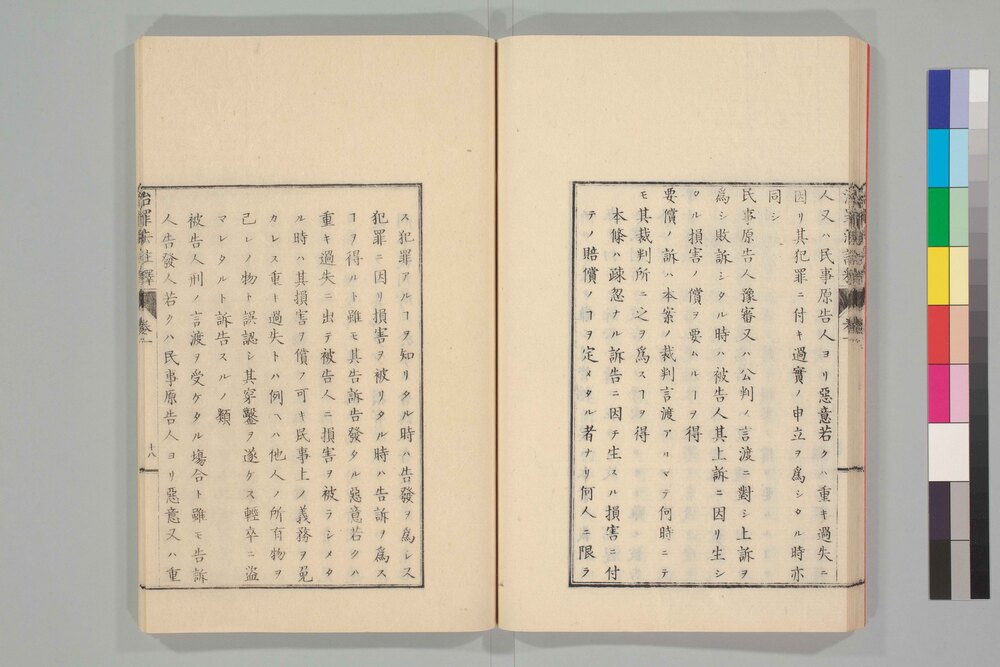 人又ハ民事原告人ヨリ惡意若クハ重キ過失ニ
因リ其犯罪ニ付キ過實ノ申立ヲ爲シタル時亦
同シ
民事原告人豫審又ハ公判ノ言渡ニ對シ上訴ヲ
爲シ敗訴シタル時ハ被告人其上訴ニ因リ生シ
タル損害ノ償ヲ要ムルヿヲ得
要償ノ訴ハ本案ノ裁判言渡アルマテ何時ニテ
モ其裁判所ニ之ヲ爲スヿヲ得
本條ハ疎忽ナル訴告ニ因テ生スル損害ニ付
テノ賠償ノヿヲ定メタル者ナリ何人ニ限ラ
ス犯罪アルヿヲ知リタル時ハ告發ヲ爲シス
犯罪ニ因リ損害ヲ被リタル時ハ告訴ヲ爲ス
ヿヲ得ルト雖モ其告訴告發タル惡意若クハ
重キ過失ニ出テ被告人ニ損害ヲ被ラシメタ
ル時ハ其損害ヲ償フ可キ民事上ノ義務ヲ免
カレス重キ過失トハ例ヘハ他人ノ所有物ヲ
己レノ物ト誤認シ其穿鑿ヲ遂ケス輕卒ニ盜
マレタルト訴告スルノ類
被告人刑ノ言渡ヲ受ケタル塲合ト雖モ告訴
人告發人若クハ民事原告人ヨリ惡意又ハ重
治罪法註釋 卷一
十八